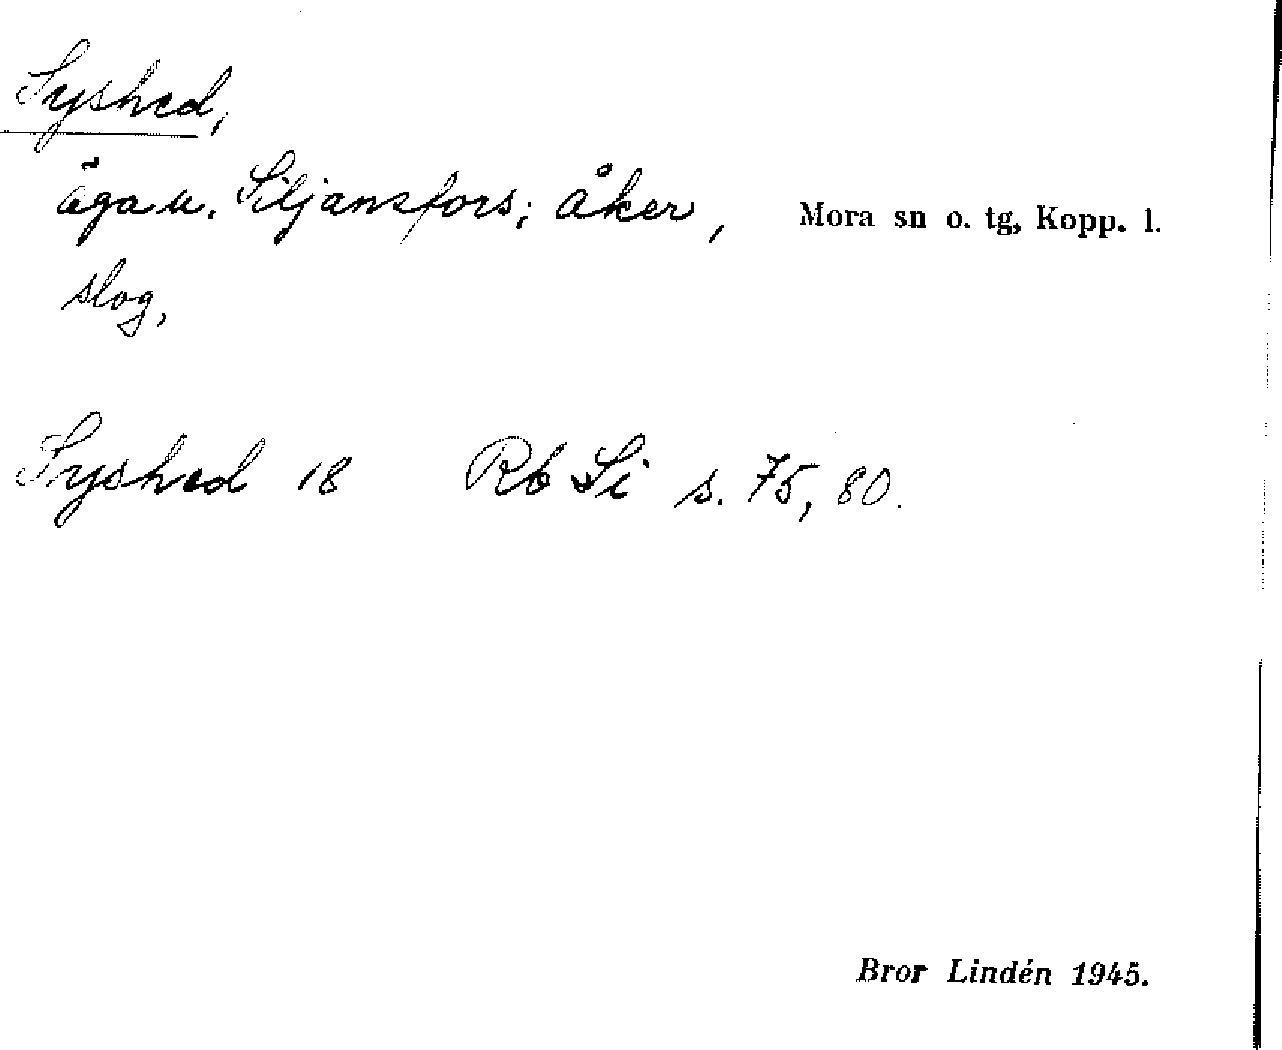 Syshed,
äga u. Siljansfors; åker,
Mora sn o. tg, Kopp. l.
slog,
Syshed 18 Rb Si s. 75, 80.
Bror Lindén 1945.